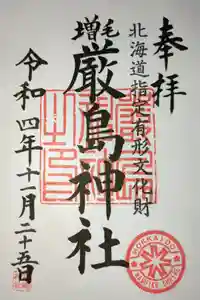 奉拝
北海道指定有形文化財
増毛
厳島神社
令和四年十一月二十五日
HOKKAIDO